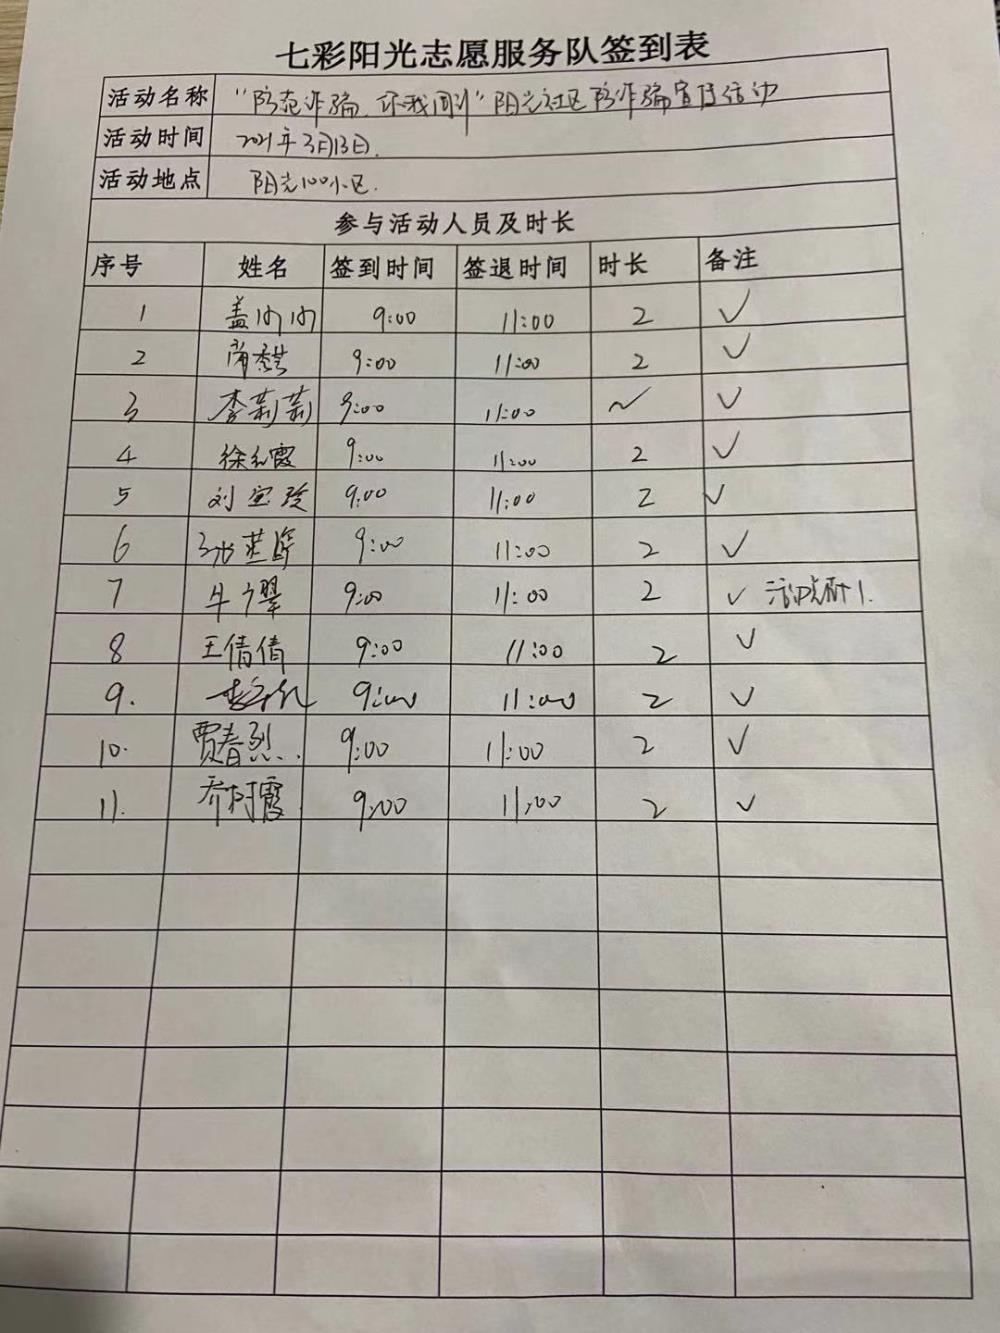 七彩阳光志愿服务队签到表
活动名称 "防范诈骗、你我同行"阳光社区防诈骗宣传活动
活动时间 2021年3月13日.
活动地点 阳光100小区.
参与活动人员及时长
序号 姓名 签到时间 签退时间 时长 备注
1 盖 9:00 11:00 2 ✓
2 9:00 11:00 2 ✓
3 李莉莉 9:00 11:00 ~ ✓
4 徐红霞 9:00 11:00 2 ✓
5 刘宝珍 9:00 11:00 2 ✓
6 张 9:00 11:00 2 ✓
7 牛翠 9:00 11:00 2 ✓
8 王倩倩 9:00 11:00 2 ✓
9. 9:00 11:00 2 ✓
10. 贾春烈 9:00 11:00 2 ✓
11. 乔树霞 9:00 11:00 2 ✓